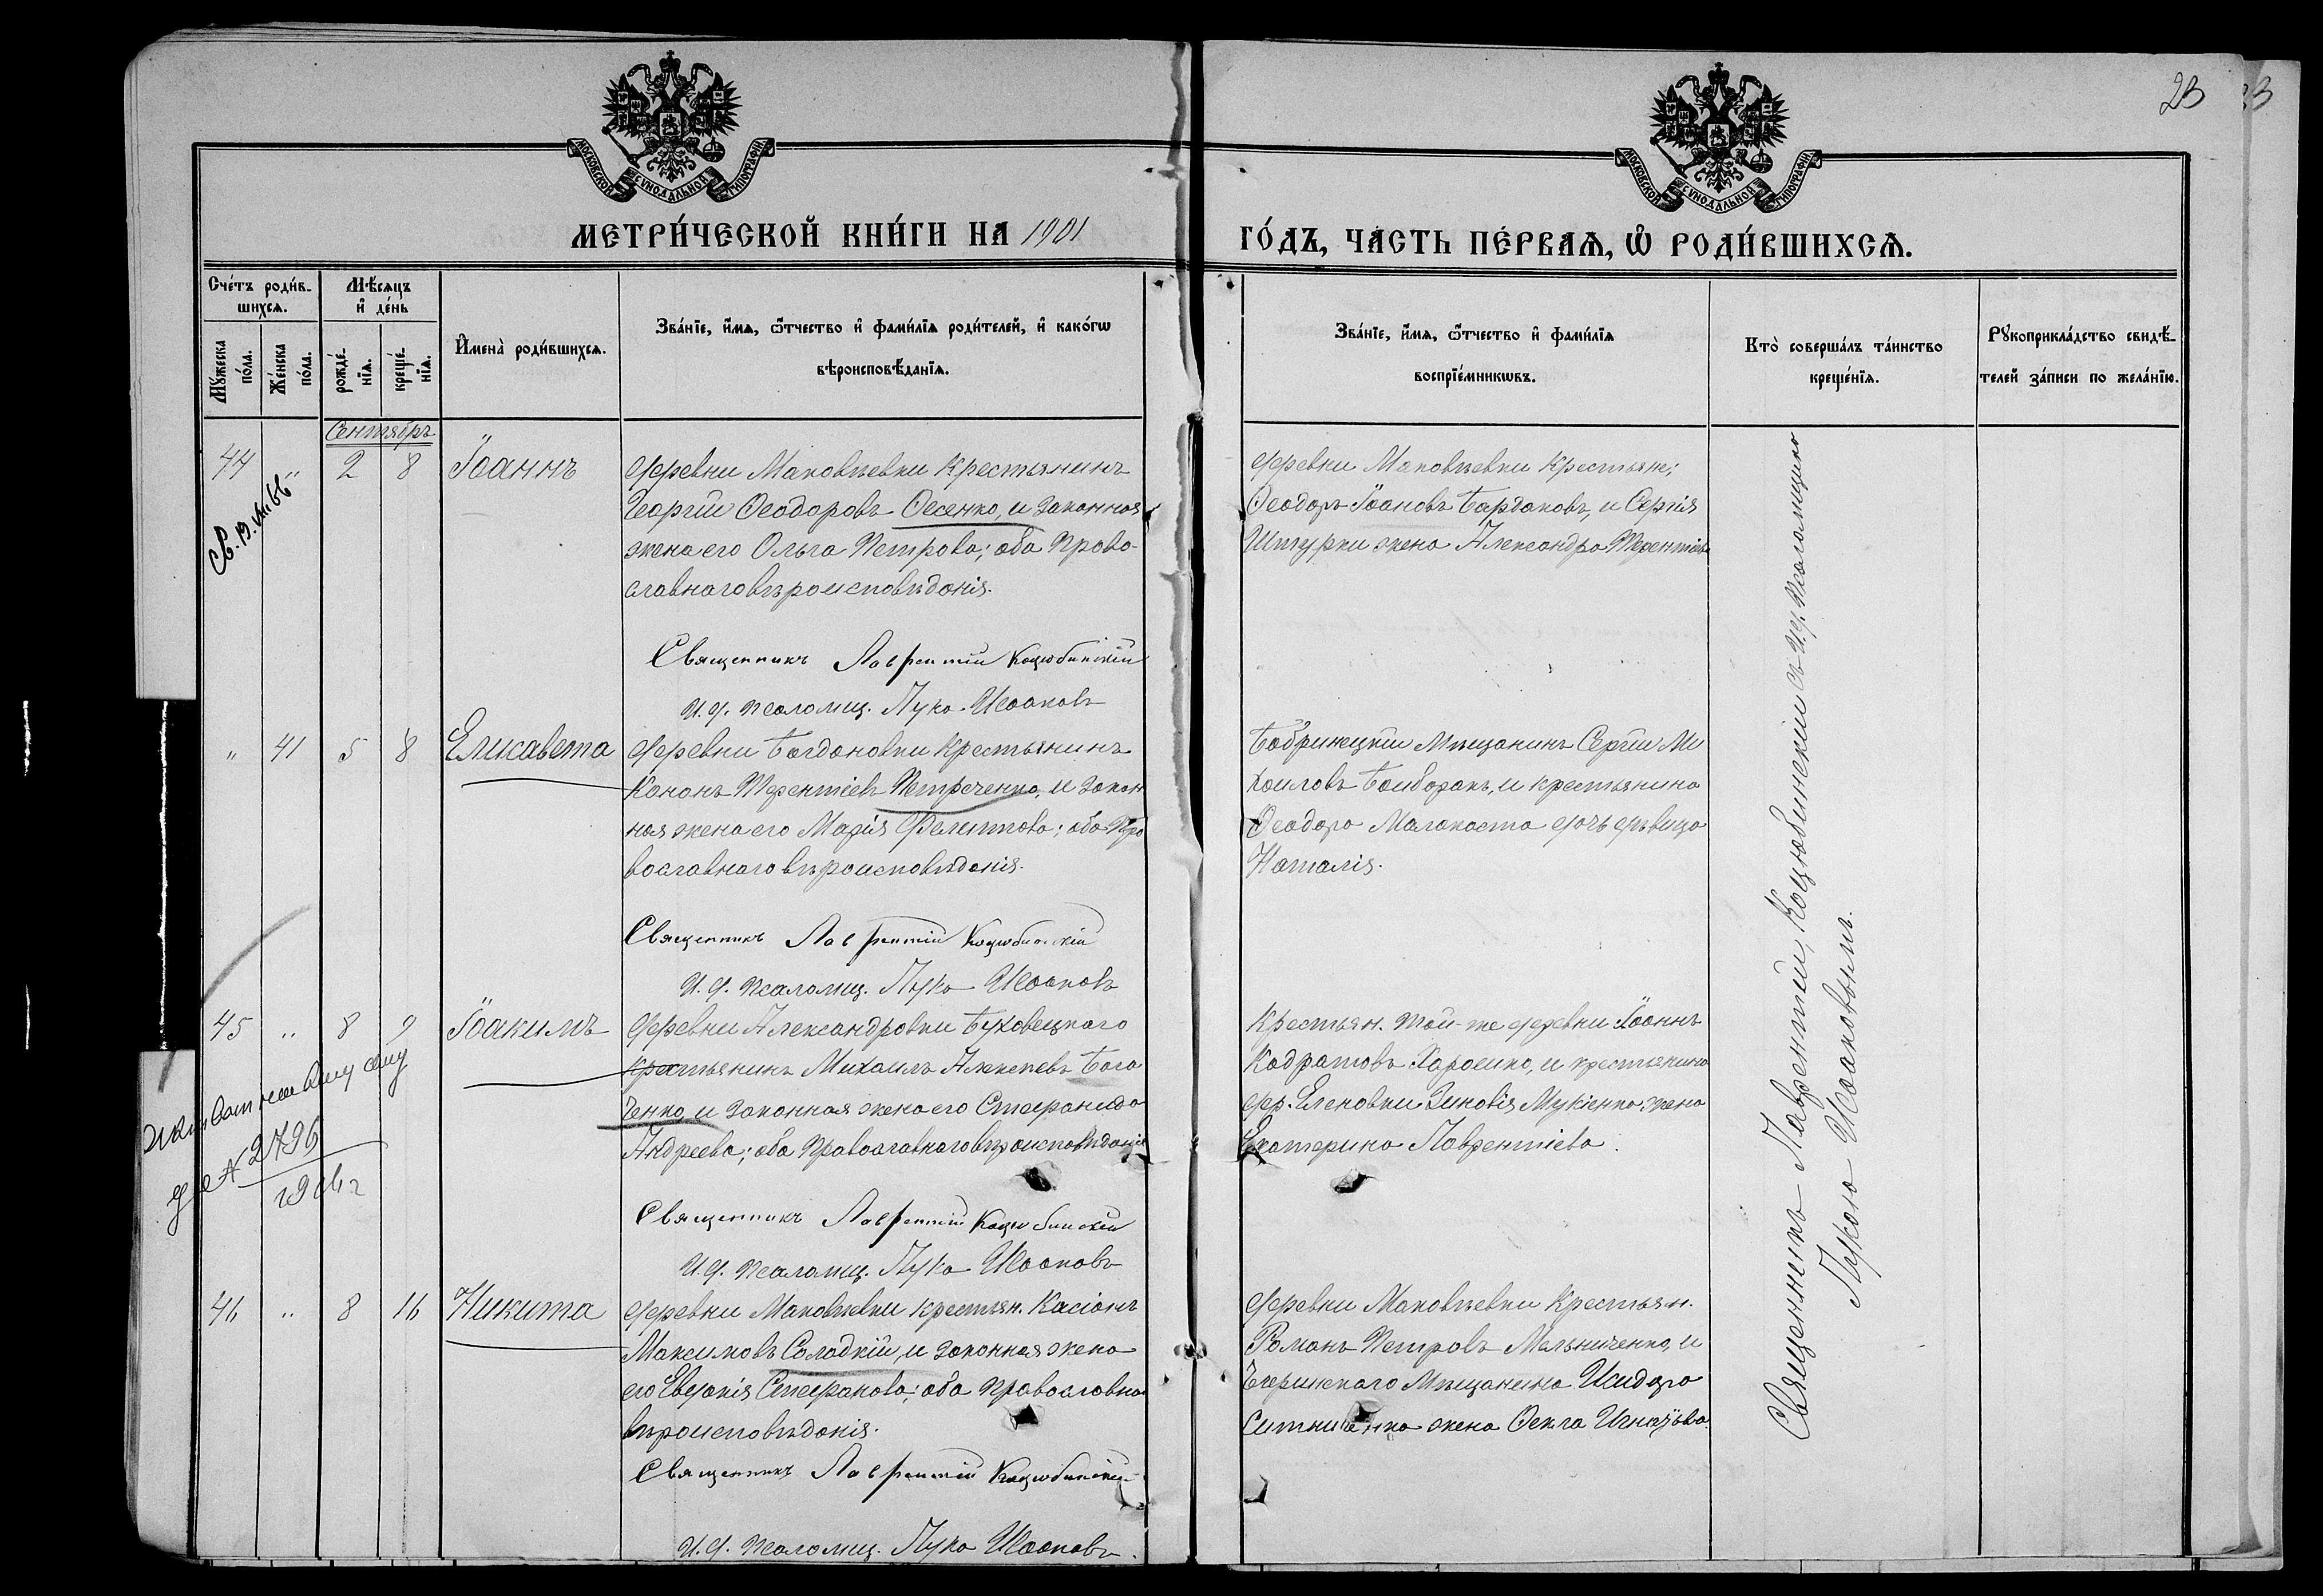 23
МОСКОВСКОЙ СѴНОДАЛЬНОЙ ТИПОГРАФІИ
МОСКОВСКОЙ СѴНОДАЛЬНОЙ ТИПОГРАФІИ
МЕТРИ́ЧЕСКОЙ КНИ́ГИ НА 1901
ГО́ДЪ, ЧА́СТЬ ПЕ́РВАѦ, Ѽ РОДИ́ВШИХСѦ.
Сче́тъ роди́в-
шихсѧ.
Мѣ́сяцъ
и҆ де́нь
Мꙋ́жеска
по́ла.
Же́нска
по́ла.
рожде́-
нїѧ.
креще́-
нїѧ.
И҆мена̀ роди́вшихсѧ.
Зва́нїе, и҆́мѧ, ѻ҆́тчество и҆ фами́лїѧ роди́телей, и҆ како́гѡ
вѣроисповѣ́данїѧ.
Зва́нїе, и҆́мѧ, ѻ҆́тчество и҆ фами́лїѧ
воспрїе́мникѡвъ.
Кто̀ соверша́лъ та́инство
креще́нїѧ.
Рꙋкоприкла́дство свидѣ́-
телей за́писи по жела́нїю.
Сентябрь
44 " 2 8 Іоаннъ
деревни Маковѣевки крестьянинъ
Георгій Ѳеодоровъ Оксенко, и законная
жена его Ольга Петрова; оба Право-
славнаго вѣроисповѣданія.
Священникъ Лаврентій Коцюбинскій
И. д. псаломщ. Лука Исааковъ
деревни Маковѣевки крестьяне;
Ѳеодоръ Іоановъ Бардаковъ, и Сергія
Штурки жена Александра Терентіева
" 41 5 8 Елисавета
деревни Богдановки крестьянинъ
Кононъ Терентіевъ Петреченко, и закон
ная жена его Марія Филиппова; оба Пра
вославнаго вѣроисповѣданія.
Священникъ Лаврентій Коцюбинскій
И. д. псаломщ. Лука Исааковъ
Бобринецкій мѣщанинъ Сергій Ми
хаиловъ Байборакъ, и крестьянина
Ѳеодора Малахаста дочь дѣвица
Наталія.
45 " 8 9 Іоакимъ
деревни Александровки Буховецкаго
крестьянинъ Михаилъ Алексѣевъ Бога
ченко, и законная жена его Стефанида
Андреева; оба Православнаго вѣроисповѣданія
Священникъ Лаврентій Коцюбинскій
И. д. псаломщ. Лука Исааковъ
Крестьян. той-же деревни Іоаннъ
Кодратовъ Харошко, и крестьянина
дер. Еленовки Зиновія Мукіенко жена
Екатерина Лаврентіева.
№ 2796
46 " 8 16 Никита
деревни Маковѣевки крестьян. Касіанъ
Максимовъ Солодкій, и законная жена
его Евдокія Стефанова; оба Православна
вѣроисповѣданія.
Священникъ Лаврентій Коцюбинскій
И. д. псаломщ. Лука Исааковъ.
деревни Маковѣевки крестьян.
Романъ Петровъ Мельниченко, и
мѣщанина Исидора
Ситниченка жена Ѳекла
Священникъ Лаврентій Коцюбинскій съ И. д. псаломщика
Лукою Исааковымъ.